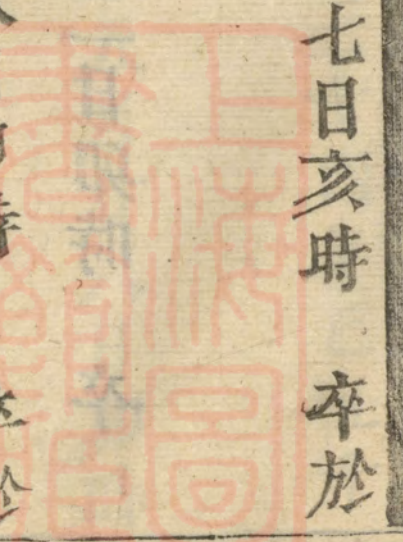 七日亥時　卒於
時　卒於
上海圖
書館藏